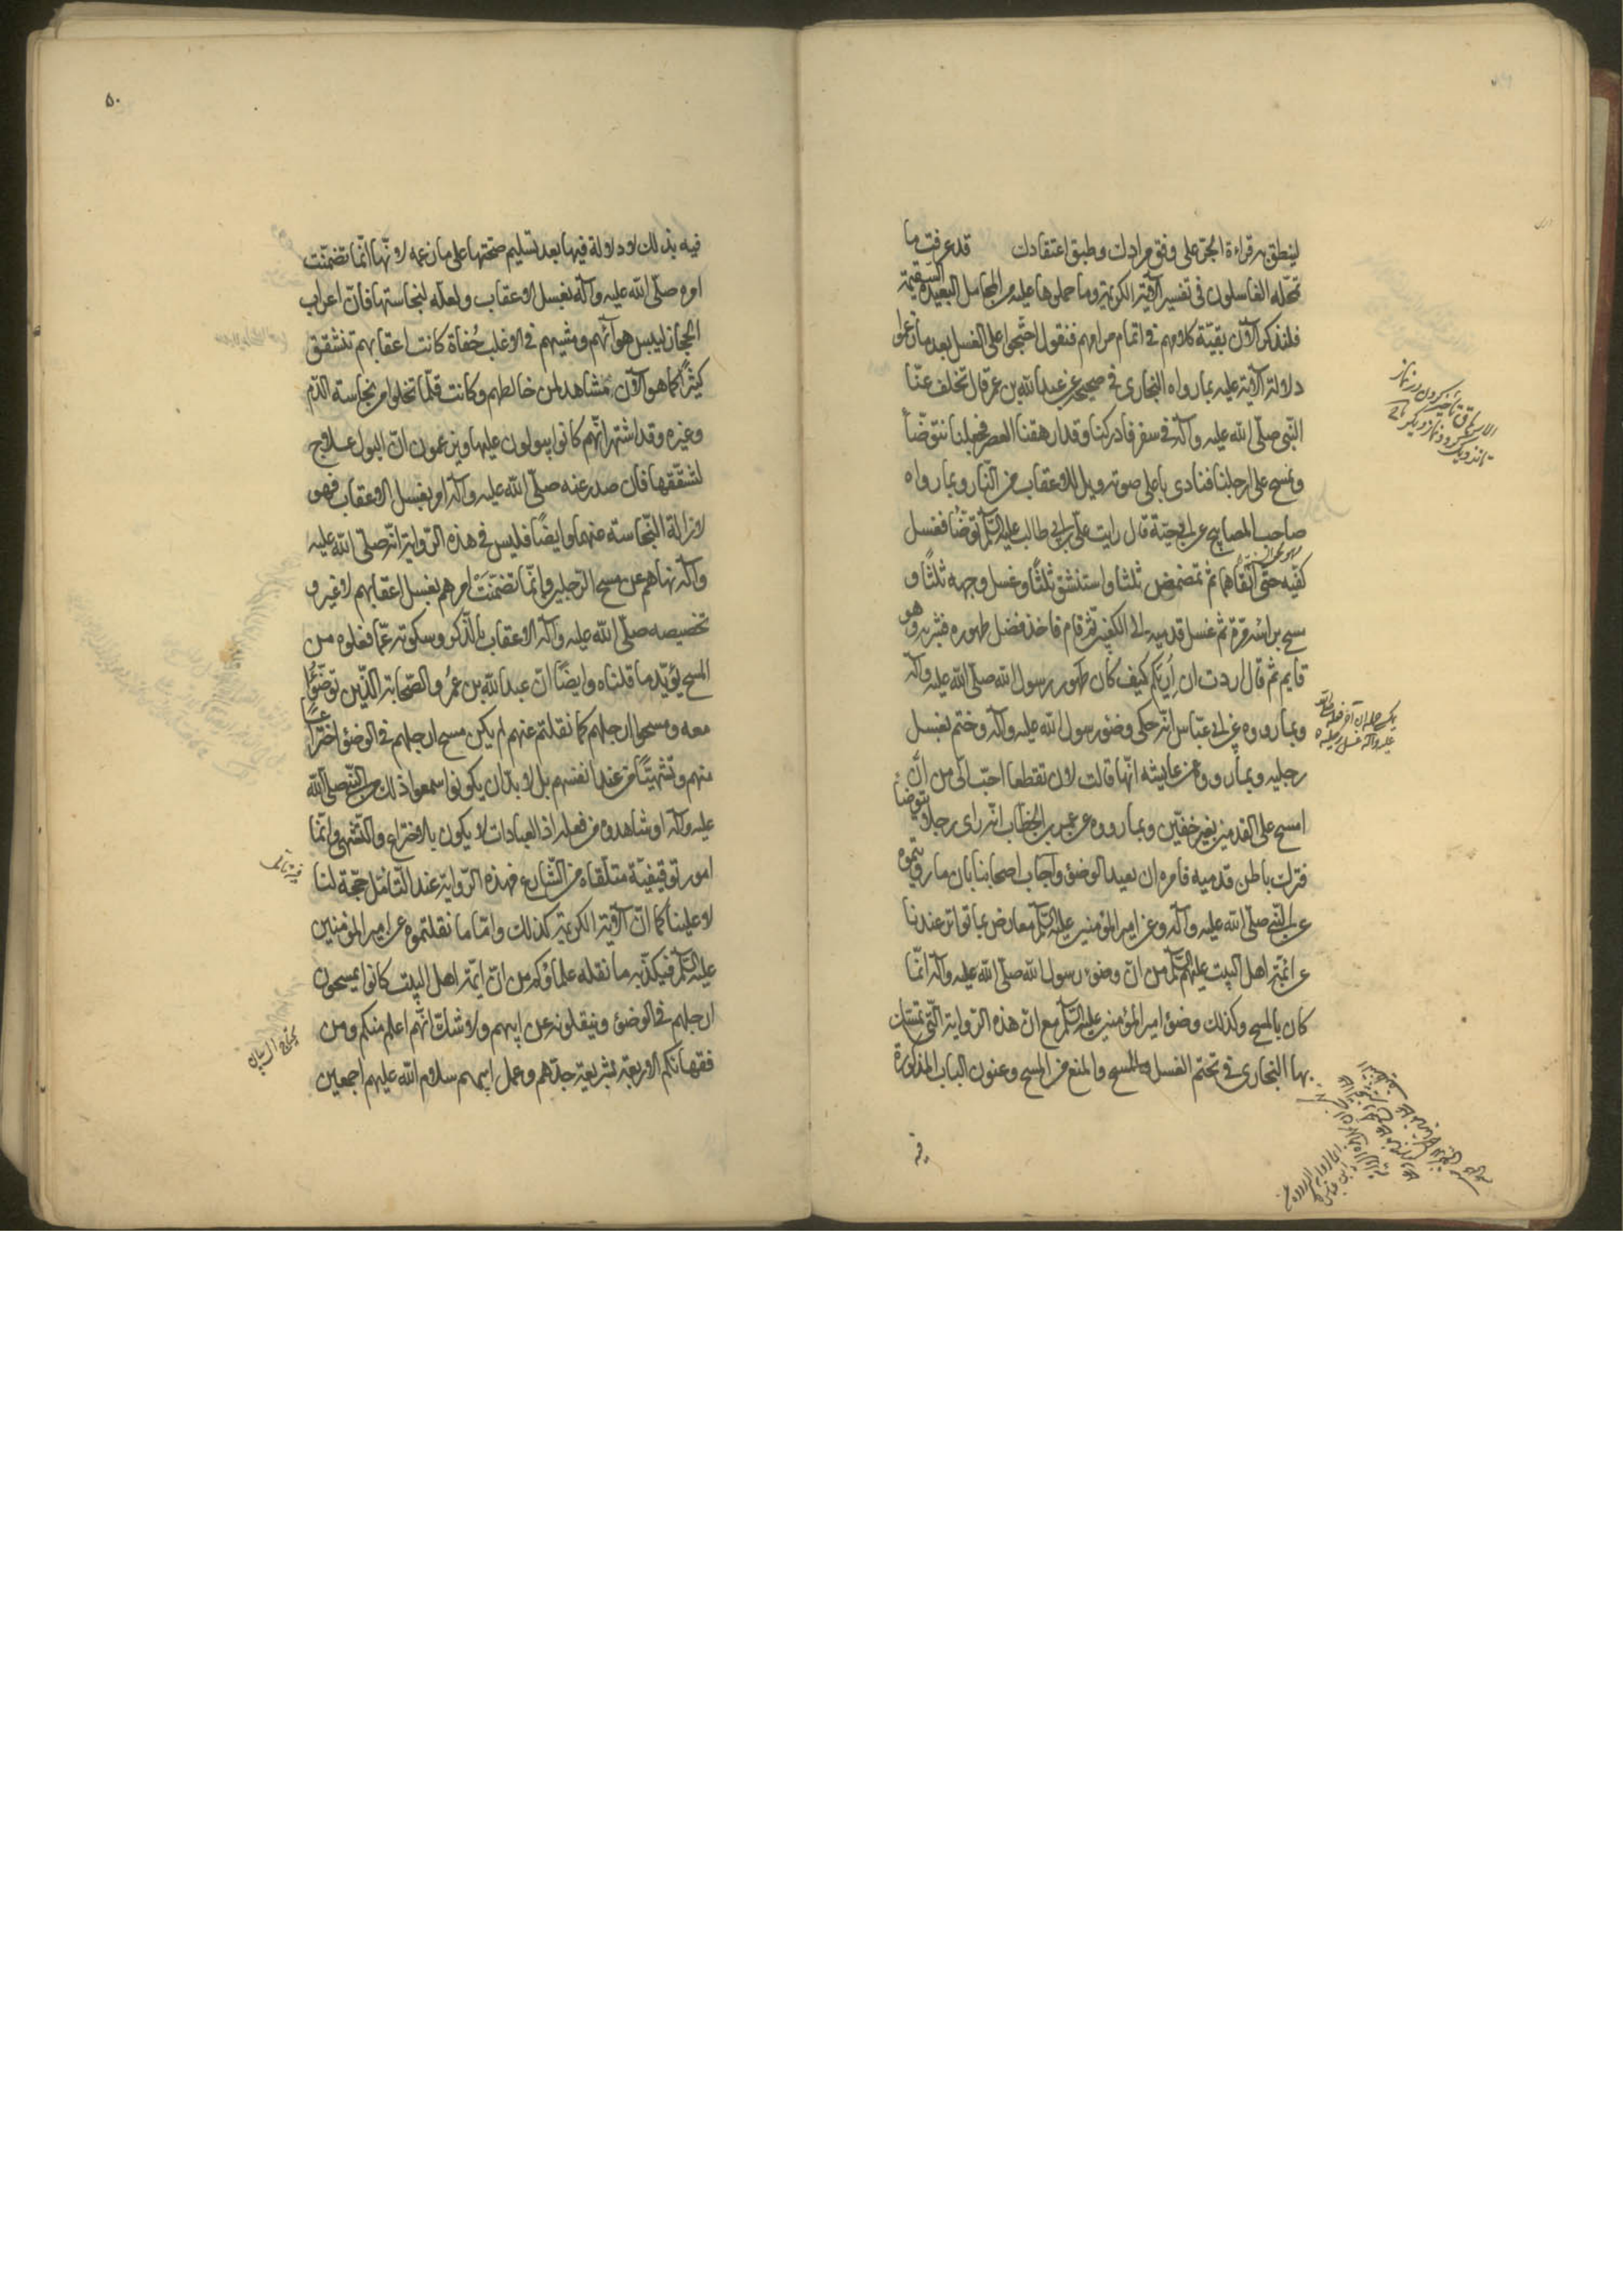 لينطق به قراءة الجر على وفق مرادك وطبق اعتقادك قد عرفت ما
تمحّله الغاسلون في تفسير الآية الكريمة وما حملوها عليه من المحامل البعيدة السقيمة
فلنذكر الآن بقيّة كلامهم في اتمام مرامهم فنقول احتجوا على الغسل بعد ما زعموا
دلالة الآية عليه بما رواه البخاري في صحيحه عن عبد الله بن عمر قال تخلف عنّا
النبي صلّى الله عليه وآله في سفر فادركنا وقد ارهقنا العصر فجعلنا نتوضّأ
ونمسح على ارجلنا فنادى باعلى صوته ويل للاعقاب من النّار وبما رواه
صاحب المصابيح عن ابي حيّة قال رايت علي بن ابي طالب عليه السّلم توضّأ فغسل
كفّيه حتّى انقاهما ثم تمضمض ثلثا واستنشق ثلثًا وغسل وجهه ثلثًا و
مسح براسه مرّة ثم غسل قدميه الى الكعبين ثم قام فاخذ فضل طهوره فشربه وهو
قايم ثم قال اردت ان اُريكم كيف كان طهور رسول الله صلّى الله عليه وآله
وبما رووه عن ابن عبّاس انّه حكى وضوء رسول الله صلّى الله عليه وآله وختم بغسل
رجليه وبما رووه عن عايشه انّها قالت لان تقطعا احبّ الىّ من انْ
امسح على القدمين بغير خفّين وبما رووه عن عمر بن الخطّاب انّه راى رجلا يتوضأ
فترك باطن قدميه فامره ان يعيد الوضوء واجاب اصحابنا بان ما رويتموه
عن النّبي صلّى الله عليه وآله وعن امير المؤمنين عليه السّلم معارض بما تواتر عندنا
عن ائمّة اهل البيت عليهم السّلم من انّ وضوء رسول الله صلّى الله عليه وآله انّما
كان بالمسح وكذلك وضوء امير المؤمنين عليه السّلم مع انّ هذه الرّواية التّي تمسّك
بها البخاري في تحتم الغسل والمسح والمنع من المسح وعنون الباب المذكورة
فيه
٥٠
فيه بذلك لا دلالة فيها بعد تسليم صحّتها على ما زعمه لانّها انّما تضمّنت
امره صلّى الله عليه وآله بغسل الاعقاب ولعلّه لنجاستها فانّ اعراب
الحجاز ليبس هوآئهم ومشيهم في الاغلب حُفاة كانت اعقابهم تتشقق
كثيرًا كما هو الآن مشاهد لمن خالطهم وكانت قلّما تخلوا من نجاسة الدّم
وغيره وقد اشتهر انّهم كانوا يبولون عليها ويزعمون انّ البول علاج
لتشقّقها فان صدر عنه صلّى الله عليه وآله امر بغسل الاعقاب فهو
لازالة النّجاسة عنها وايضًا فليس في هذه الرّواية انّه صلّى الله عليه
وآله نهاهم عن مسح الرّجلين وانّما تضمّنت امرهم بغسل اعقابهم لا غير و
تخصيصه صلّى الله عليه وآله الاعقاب بالذّكر وسكوته عمّا فعلوه من
المسح يؤيّد ما قلناه وايضًا انّ عبد الله بن عمر والصّحابة الذّين توضّؤا
معه ومسحوا ارجلهم كما نقلتم عنهم لم يكن مسح ارجلهم في الوضوء اختراعًا
منهم وتشهّيًا من عند انفسهم بل لا بدّ ان يكونوا سمعوا ذلك من النّبي صلّى الله
عليه وآله او شاهدوه من فعله اذ العبادات لا يكون بالاختراع والتّشهّي وانّما
امور توقيفيّة متلقّاة من الشّارع فهذه الرّواية عند التّأمّل حجّة لنا
لا علينا كما انّ الآية الكريمة كذلك وامّا ما نقلتموه عن امير المؤمنين
عليه السّلم فيكذّبه ما نقله علماؤكم من انّ ائمّة اهل البيت كانوا يمسحون
ارجلهم في الوضوء وينقلونه عن ابيهم ولا شك انّهم اعلم منكم ومن
فقهائكم الاربعة بشريعة جدّهم وعمل ابيهم سلام الله عليهم اجمعين